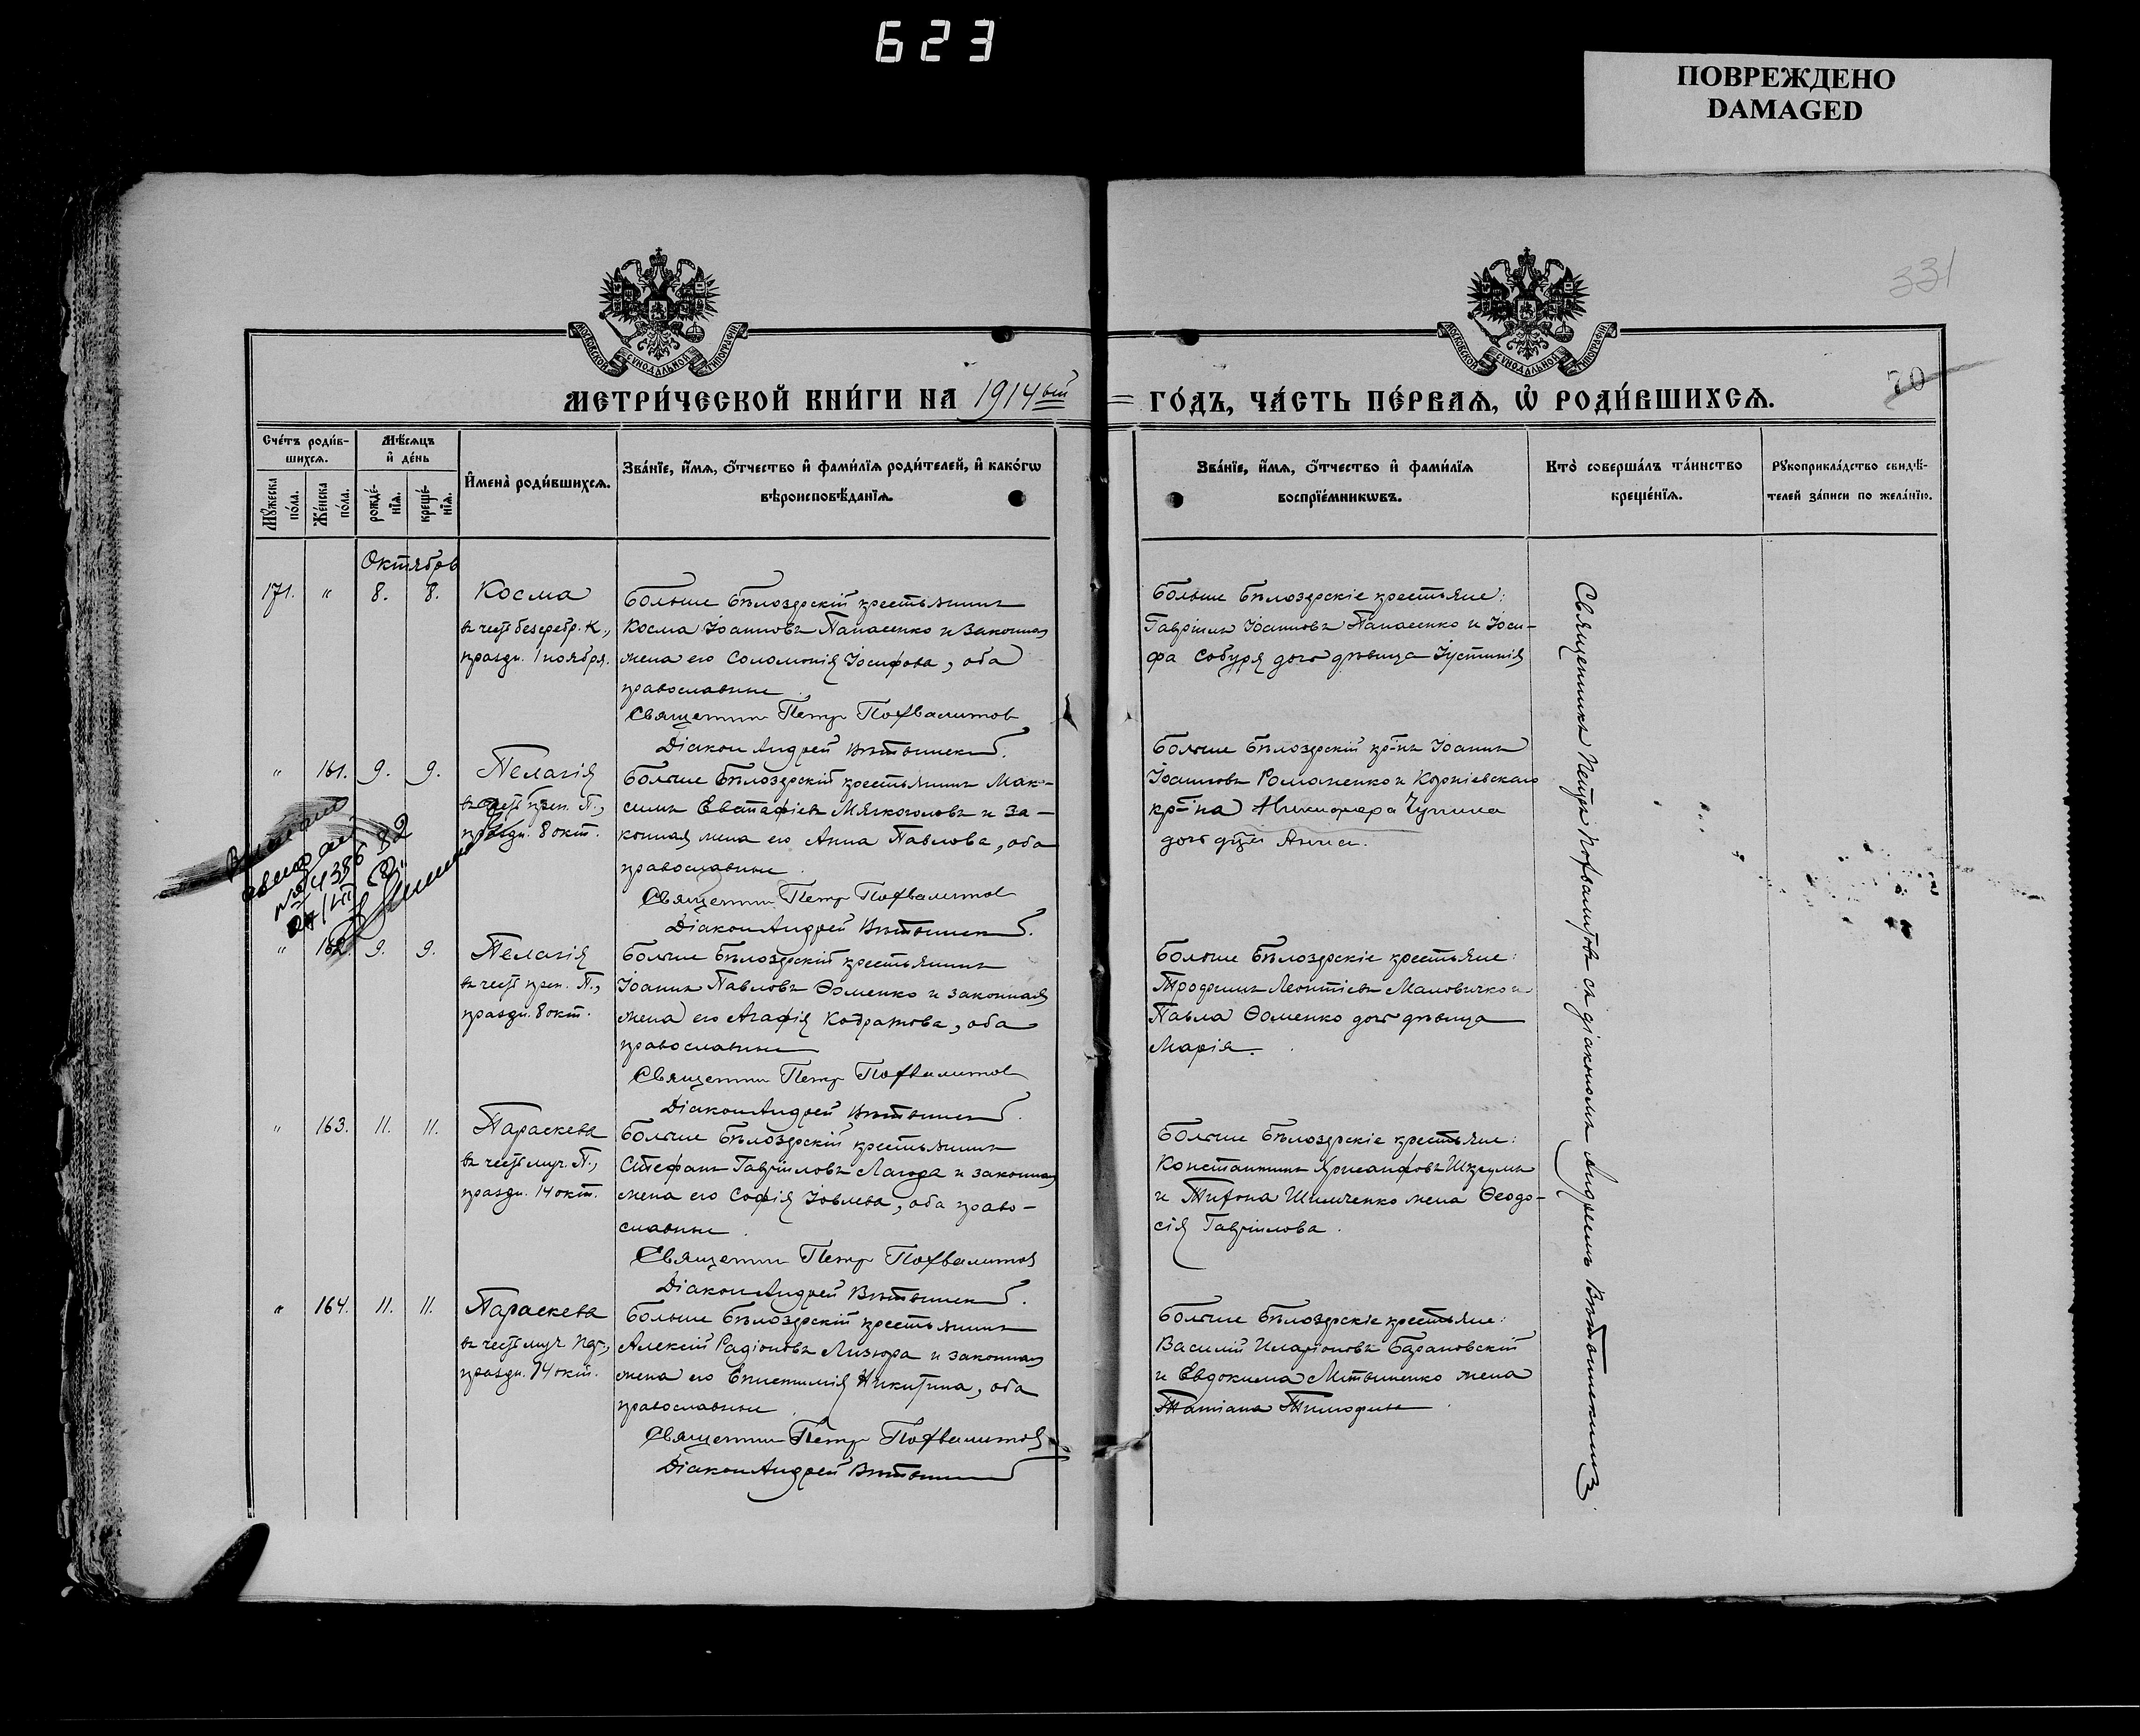 623
ПОВРЕЖДЕНО
DAMAGED
331
МОСКОВСКОЙ СѴНОДАЛЬНОЙ ТИПОГРАФІИ
МОСКОВСКОЙ СѴНОДАЛЬНОЙ ТИПОГРАФІИ
МЕТРИ́ЧЕСКОЙ КНИ́ГИ НА 1914ый
ГО́ДЪ, ЧА́СТЬ ПЕ́РВАѦ, Ѡ҆ РОДИ́ВШИХСѦ.
70
Сче́тъ роди́в-
шихсѧ.
Мꙋ́жеска
по́ла.
Же́нска
по́ла.
Мѣ́сѧцъ
и҆ де́нь
рожде́-
нїѧ.
креще́-
нїѧ.
И҆мена̀ роди́вшихсѧ.
Зва́нїе, и҆́мѧ, ѻ҆́тчество и҆ фами́лїѧ роди́телей, и҆ како́гѡ
вѣроисповѣ́данїѧ.
Зва́нїе, и҆́мѧ, ѻ҆́тчество и҆ фами́лїѧ
воспрїе́мникѡвъ.
Кто̀ соверша́лъ та́инство
креще́нїѧ.
Рꙋкоприкла́дство свидѣ́-
телей за́писи по жела́нїю.
Октябрь
171. " 8. 8. Косма
въ честь безсребр. К.,
праздн. 1 ноября.
Больше Бѣлозерскій крестьянинъ
Косма Іоанновъ Панасенко и законная
жена его Соломонія Іосифова, оба
православные
Священник Петр Похвалитов
Діакон Андрей
Больше Бѣлозерскіе крестьяне:
Гавріилъ Іоанновъ Панасенко и Іоси-
фа Собуря дочь дѣвица Іустинія
" 161. 9. 9. Пелагія
въ честь преп. П.,
праздн. 8 окт.
Больше Бѣлозерскій крестьянинъ Мак-
симъ Евстафіевъ Мягкоголовъ и за-
конная жена его Анна Павлова, оба
православные
Священник Петр Похвалитов
Діакон Андрей
Больше Бѣлозерскій кр-нъ Іоаннъ
Іоанновъ Романенко и Корніевскаго
кр-на Никифора Чуприна
дочь дѣв. Анна.
№ 4386 32
" 162. 9. 9. Пелагія
въ честь преп. П.,
праздн. 8 окт.
Больше Бѣлозерскій крестьянинъ
Іоаннъ Павловъ Ѳоменко и законная
жена его Агафія Кодратова, оба
православные
Священник Петр Похвалитов
Діакон Андрей
Больше Бѣлозерскіе крестьяне:
Трофимъ Леонтіевъ Маловичко и
Павла Ѳоменко дочь дѣвица
Марія.
" 163. 11. 11. Параскева
въ честь муч. П.,
праздн. 14 окт.
Больше Бѣлозерскій крестьянинъ
Стефанъ Гавріиловъ Лагода и законная
жена его Софія Іовлева, оба право-
славные
Священник Петр Похвалитов
Діакон Андрей
Больше Бѣлозерскіе крестьяне:
Константинъ Хрисанфовъ Шкрумъ
и Тихона Шимченко жена Ѳеодо-
сія Гавріилова.
" 164. 11. 11. Параскева
въ честь муч. Пар.,
праздн. 14 окт.
Больше Бѣлозерскій крестьянинъ
Алексій Радіоновъ Лизюра и законная
жена его Епистимія Никитина, оба
православные
Священник Петр Похвалитов
Діакон Андрей
Больше Бѣлозерскіе крестьяне:
Василій Иларіоновъ Барановскій
и Евдокима Литвиненко жена
Татіана Тимофеева.
Священникъ Петръ Похвалитовъ съ діакономъ Андреемъ